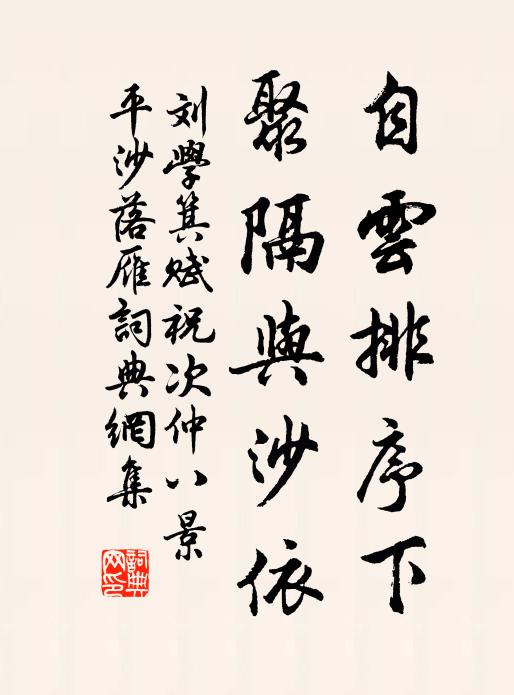 自雲排序下
聚隔與沙依
刘學箕賦祝次仲八景
平沙落雁詞典網集
詞典網印